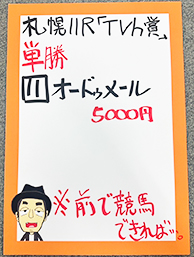 札幌11R「TVh賞」
単勝
11 オードゥメール
5000円
※前で競馬
できれば…